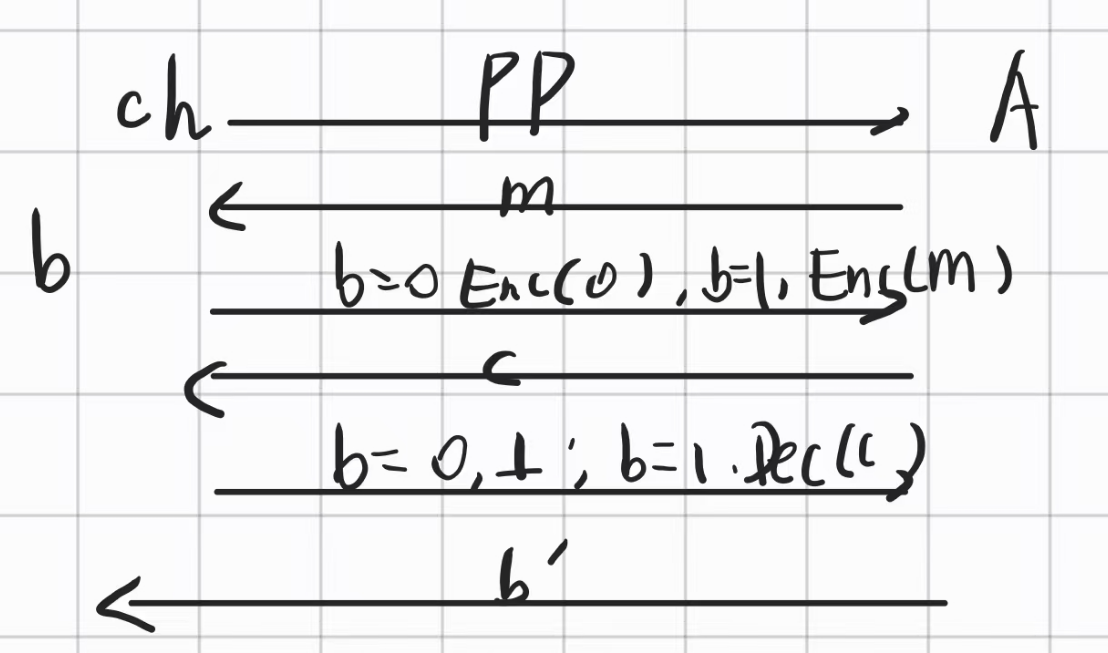 ch PP A
m
b
b=0 Enc(0), b=1, Enc(m)
c
b=0, ⊥; b=1. Dec(c)
b'